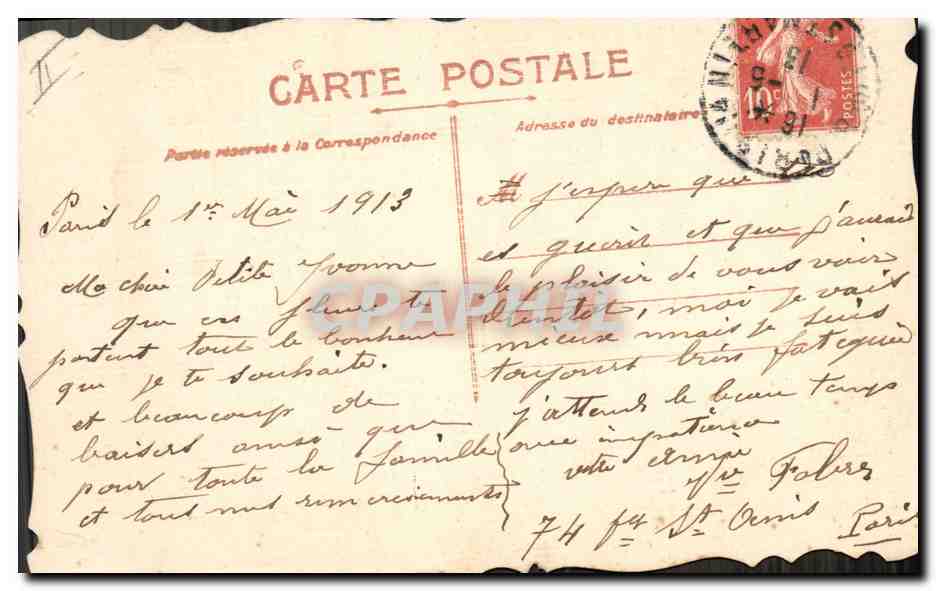 II
CARTE POSTALE
Partie réservée à la Correspondance
Adresse du destinataire
10c
POSTES
PARIS
Paris le 1er Mai 1913
Ma chère Petite Yvonne
que ces fleurs te
portent tout le bonheur
que je te souhaite.
et beaucoup de
baisers ainsi que
pour toute la famille
et tout nos remerciements
j'espère que
es guerit et que j'aurai
le plaisir de vous voir
bientot, moi je vais
mieux mais je suis
toujours très fatiguée
j'attends le beau temps
avec impatience
votre amie
Vve Fabres
74 fg St Denis Paris
CPAPHIL